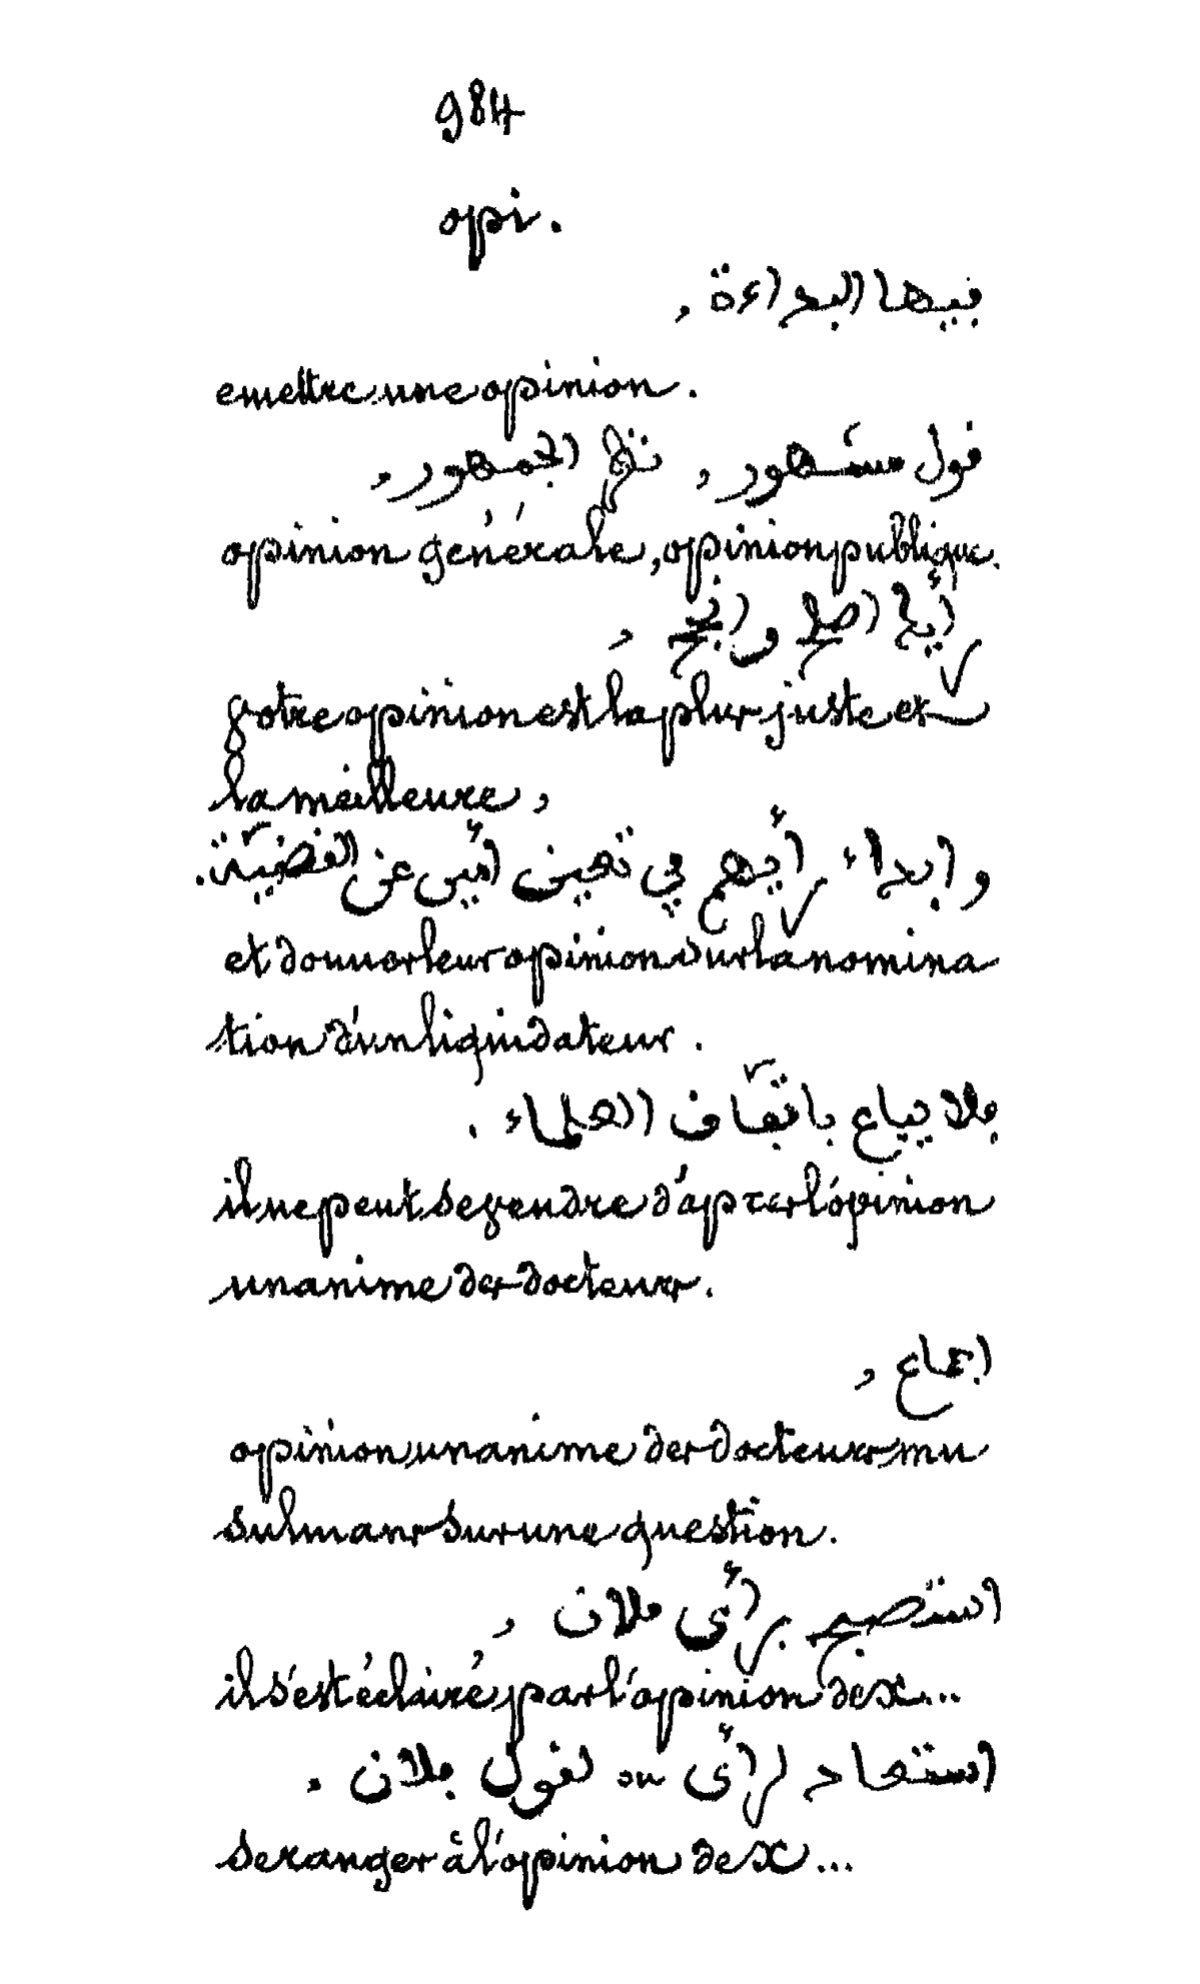 984
opi.
فيها البداءة ,
emettre une opinion.
قول مشهور , نظر الجمهور ,
opinion générale, opinion publique.
رأيك اصلح و انجح ,
votre opinion est la plus juste et
la meilleure,
و ابداء رأيهم في تعيين أمين عن القضيّة.
et donner leur opinion sur la nomina
tion d'un liquidateur.
فلا يباع باتّفاف العلماء .
il ne peut se vendre d'après l'opinion
unanime des docteurs.
اجماع ,
opinion unanime des docteurs mu
sulmans sur une question.
استصبح برأى فلان ,
il s'est éclairé par l'opinion de x...
استعاد لرأى ou لقول فلان .
se ranger à l'opinion de x...